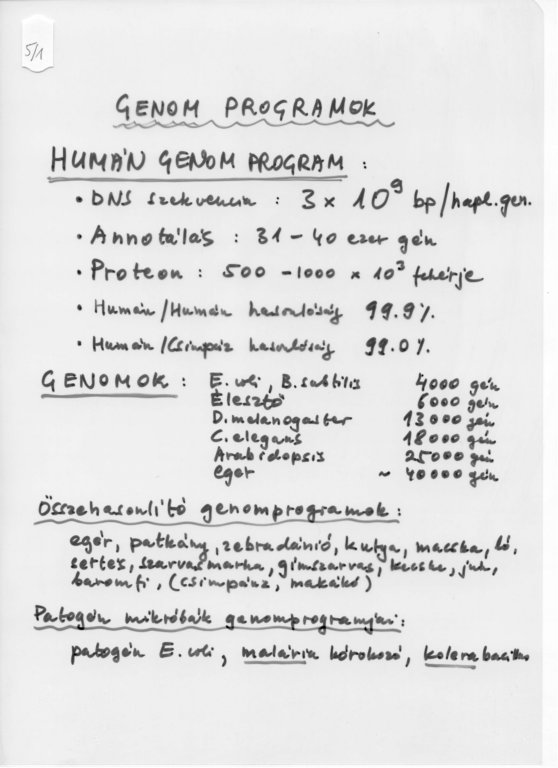 5/1
GENOM PROGRAMOK
HUMÁN GENOM PROGRAM :
• DNS szekvencia : 3 × 10⁹ bp/hapl.gen.
• Annotálás : 31 – 40 ezer gén
• Proteon : 500 – 1000 × 10³ fehérje
• Humán/Humán hasonlóság 99.9%
• Humán/Csimpánz hasonlóság 99.0%
GENOMOK : E. coli, B. subtilis 4000 gén
Élesztő 6000 gén
D. melanogaster 13000 gén
C. elegans 18000 gén
Arabidopsis 25000 gén
egér ~ 40000 gén
Összehasonlító genomprogramok :
egér, patkány, zebradánió, kutya, macska, ló,
sertés, szarvasmarha, gímszarvas, kecske, juh,
baromfi, (csimpánz, makákó)
Patogén mikróbák genomprogramjai :
patogén E. coli, malária kórokozó, kolera bacillus